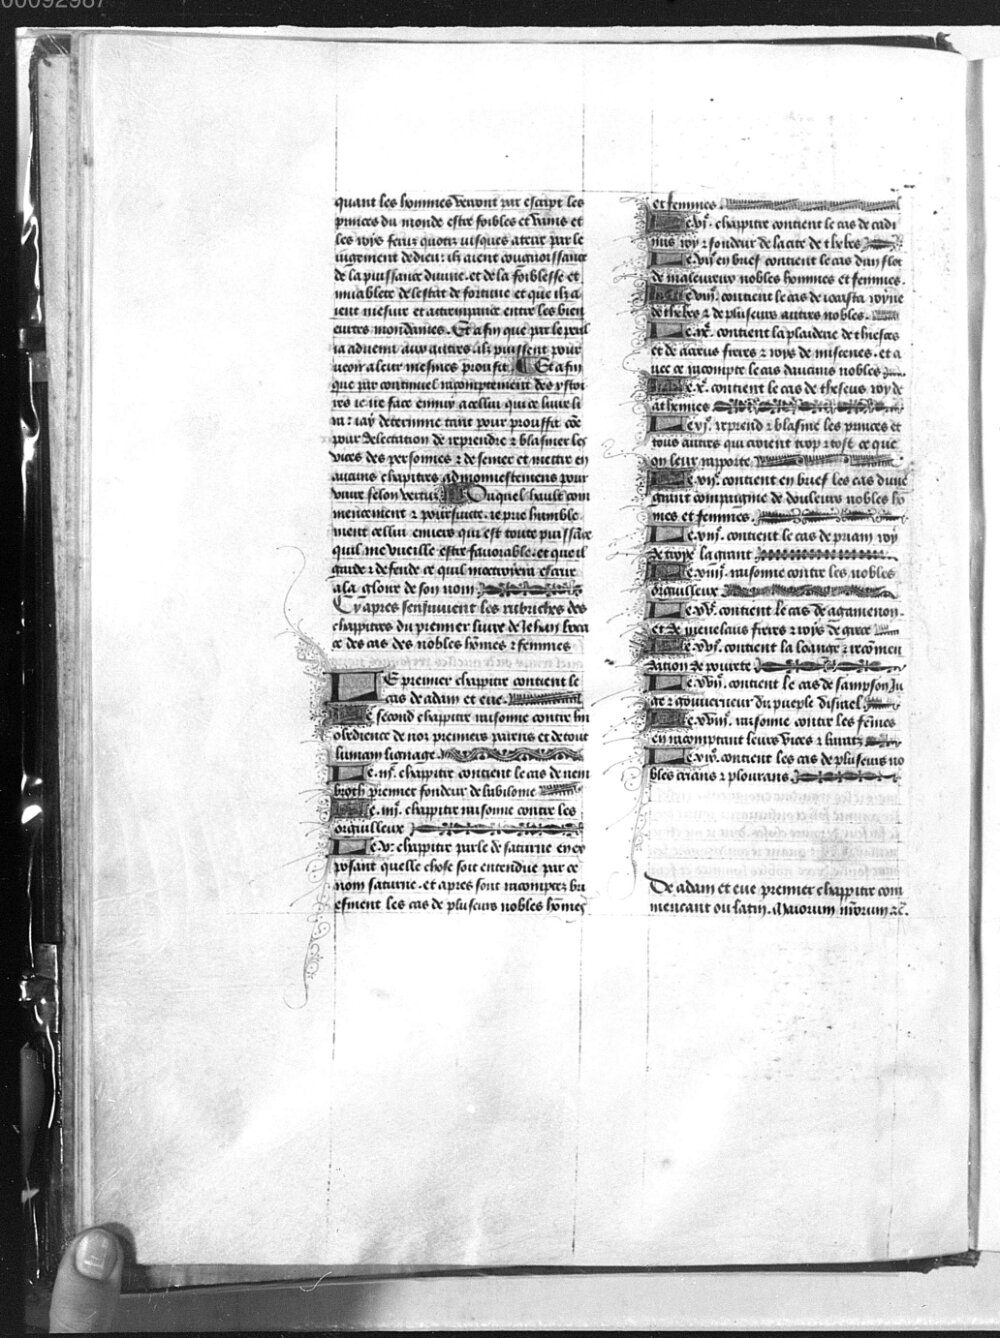 00092987
quant les hommes verront par escript les
princes du monde estre foibles et vains et
les roys feruz quotz iusques a terre par le
iugement de dieu: ilz aient congnoissance
de la puissance diuine. et de la foiblesse et
muablete de lestat de fortune et que ilz a
ient mesure et attrempance entre les bien
eurtes mondaines. Et afin que par le peril
ia aduenu aux autres ilz puissent pour
ueoir a leur mesmes prouffit. Et afin
que par continuel racomptement des ystoi
res ie ne face ennuy a cellui qui ce liure li
ra: iay determine tant pour prouffit cõe
pour delectation de reprendre ⁊ blasmer les
vices des personnes ⁊ de semer et mettre en
aucuns chapitres admonnestemens pour
viure selon vertus. Duquel hault com
mencement ⁊ poursuitte. ie prie humble
ment cellui enuers qui est toute puissãce
quil me vueille estre fauorable. et que il
garde ⁊ defende ce quil mottroyera escrire
a la gloire de son nom.
Cy apres sensuiuent les rubriches des
chappitres du premier liure de Jehan boca
ce des cas des nobles hõmes ⁊ femmes
LE premier chappitre contient le
cas de adam et eue.
Le second chappitre raisonne contre lin
obedience de noz premiers parens et de tout
lumain lignage.
Le .iij. chappitre contient le cas de nem
broth premier fondeur de babilonie
Le .iiij. chappitre raisonne contre les
orguilleux
Le .v. chappitre parle de saturne en ex
posant quelle chose soit entendue par ce
nom saturne. et apres sont racomptez bri
efment les cas de plusieurs nobles hõmes
et femmes.
Le .vj. chappitre contient le cas de cadi
mus roy ⁊ fondeur de la cite de thebes
Le .vij. en brief contient le cas dun flot
de maleureux nobles hommes et femmes.
Le .viij. contient le cas de iocasta royne
de thebes ⁊ de pluseurs autres nobles.
Le .ix. contient la plaiderie de thiestes
et de atreus freres ⁊ roys de miscenes. et a
uec ce racompte le cas daucuns nobles
Le .x. contient le cas de theseus roy de
athennes
Le .xj. reprend ⁊ blasme les princes et
tous autres qui croient trop ⁊ tost ce que
on leur rapporte
Le .xij. contient en brief les cas dune
grant compaignie de douleurs nobles ho
mes et femmes.
Le .xiij. contient le cas de priam roy
de troye la grant
Le .xiiij. raisonne contre les nobles
orguilleux
Le .xv. contient le cas de agamenon.
et de menelaus freres ⁊ roys de grece
Le .xvj. contient la loange ⁊ recõmen
dation de pourete
Le .xvij. contient le cas de sampson Ju
ge ⁊ gouuerneur du pueple disrael
Le .xviij. raisonne contre les fẽmes
en racomptant leurs vices ⁊ baratz
Le .xix. contient les cas de pluseurs no
bles crians ⁊ plourans
De adam et eue premier chappitre com
mencant ou latin. Maiorum nr̃orum ⁊c̃.